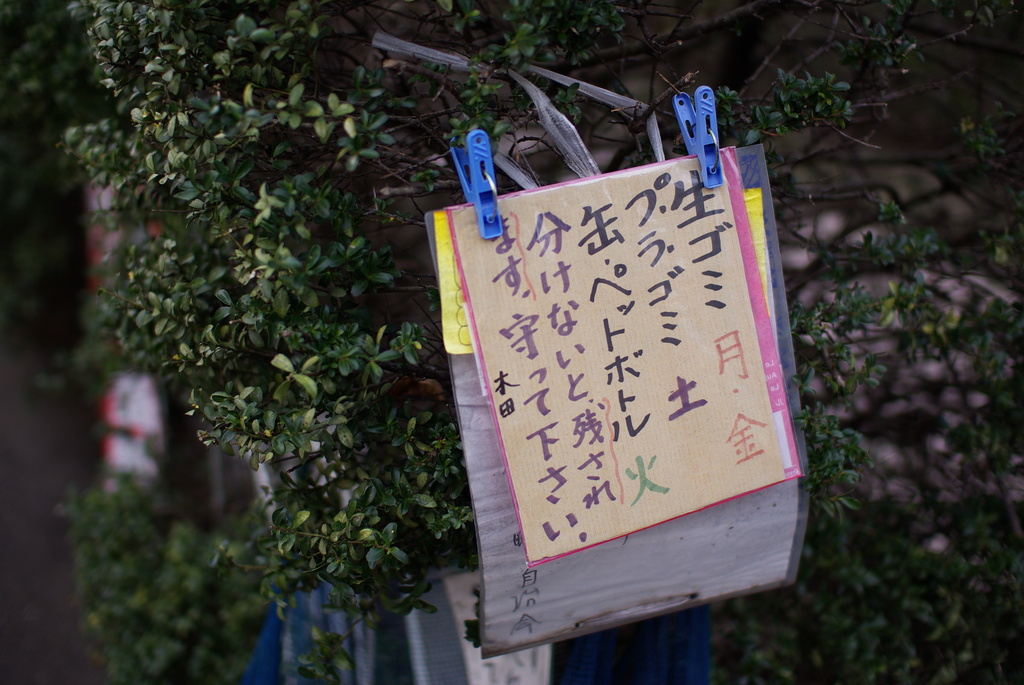 生ゴミ 月・金
プラ・ゴミ 土
缶・ペットボトル 火
分けないと、残され
ます。守って下さい。
木田
自治会